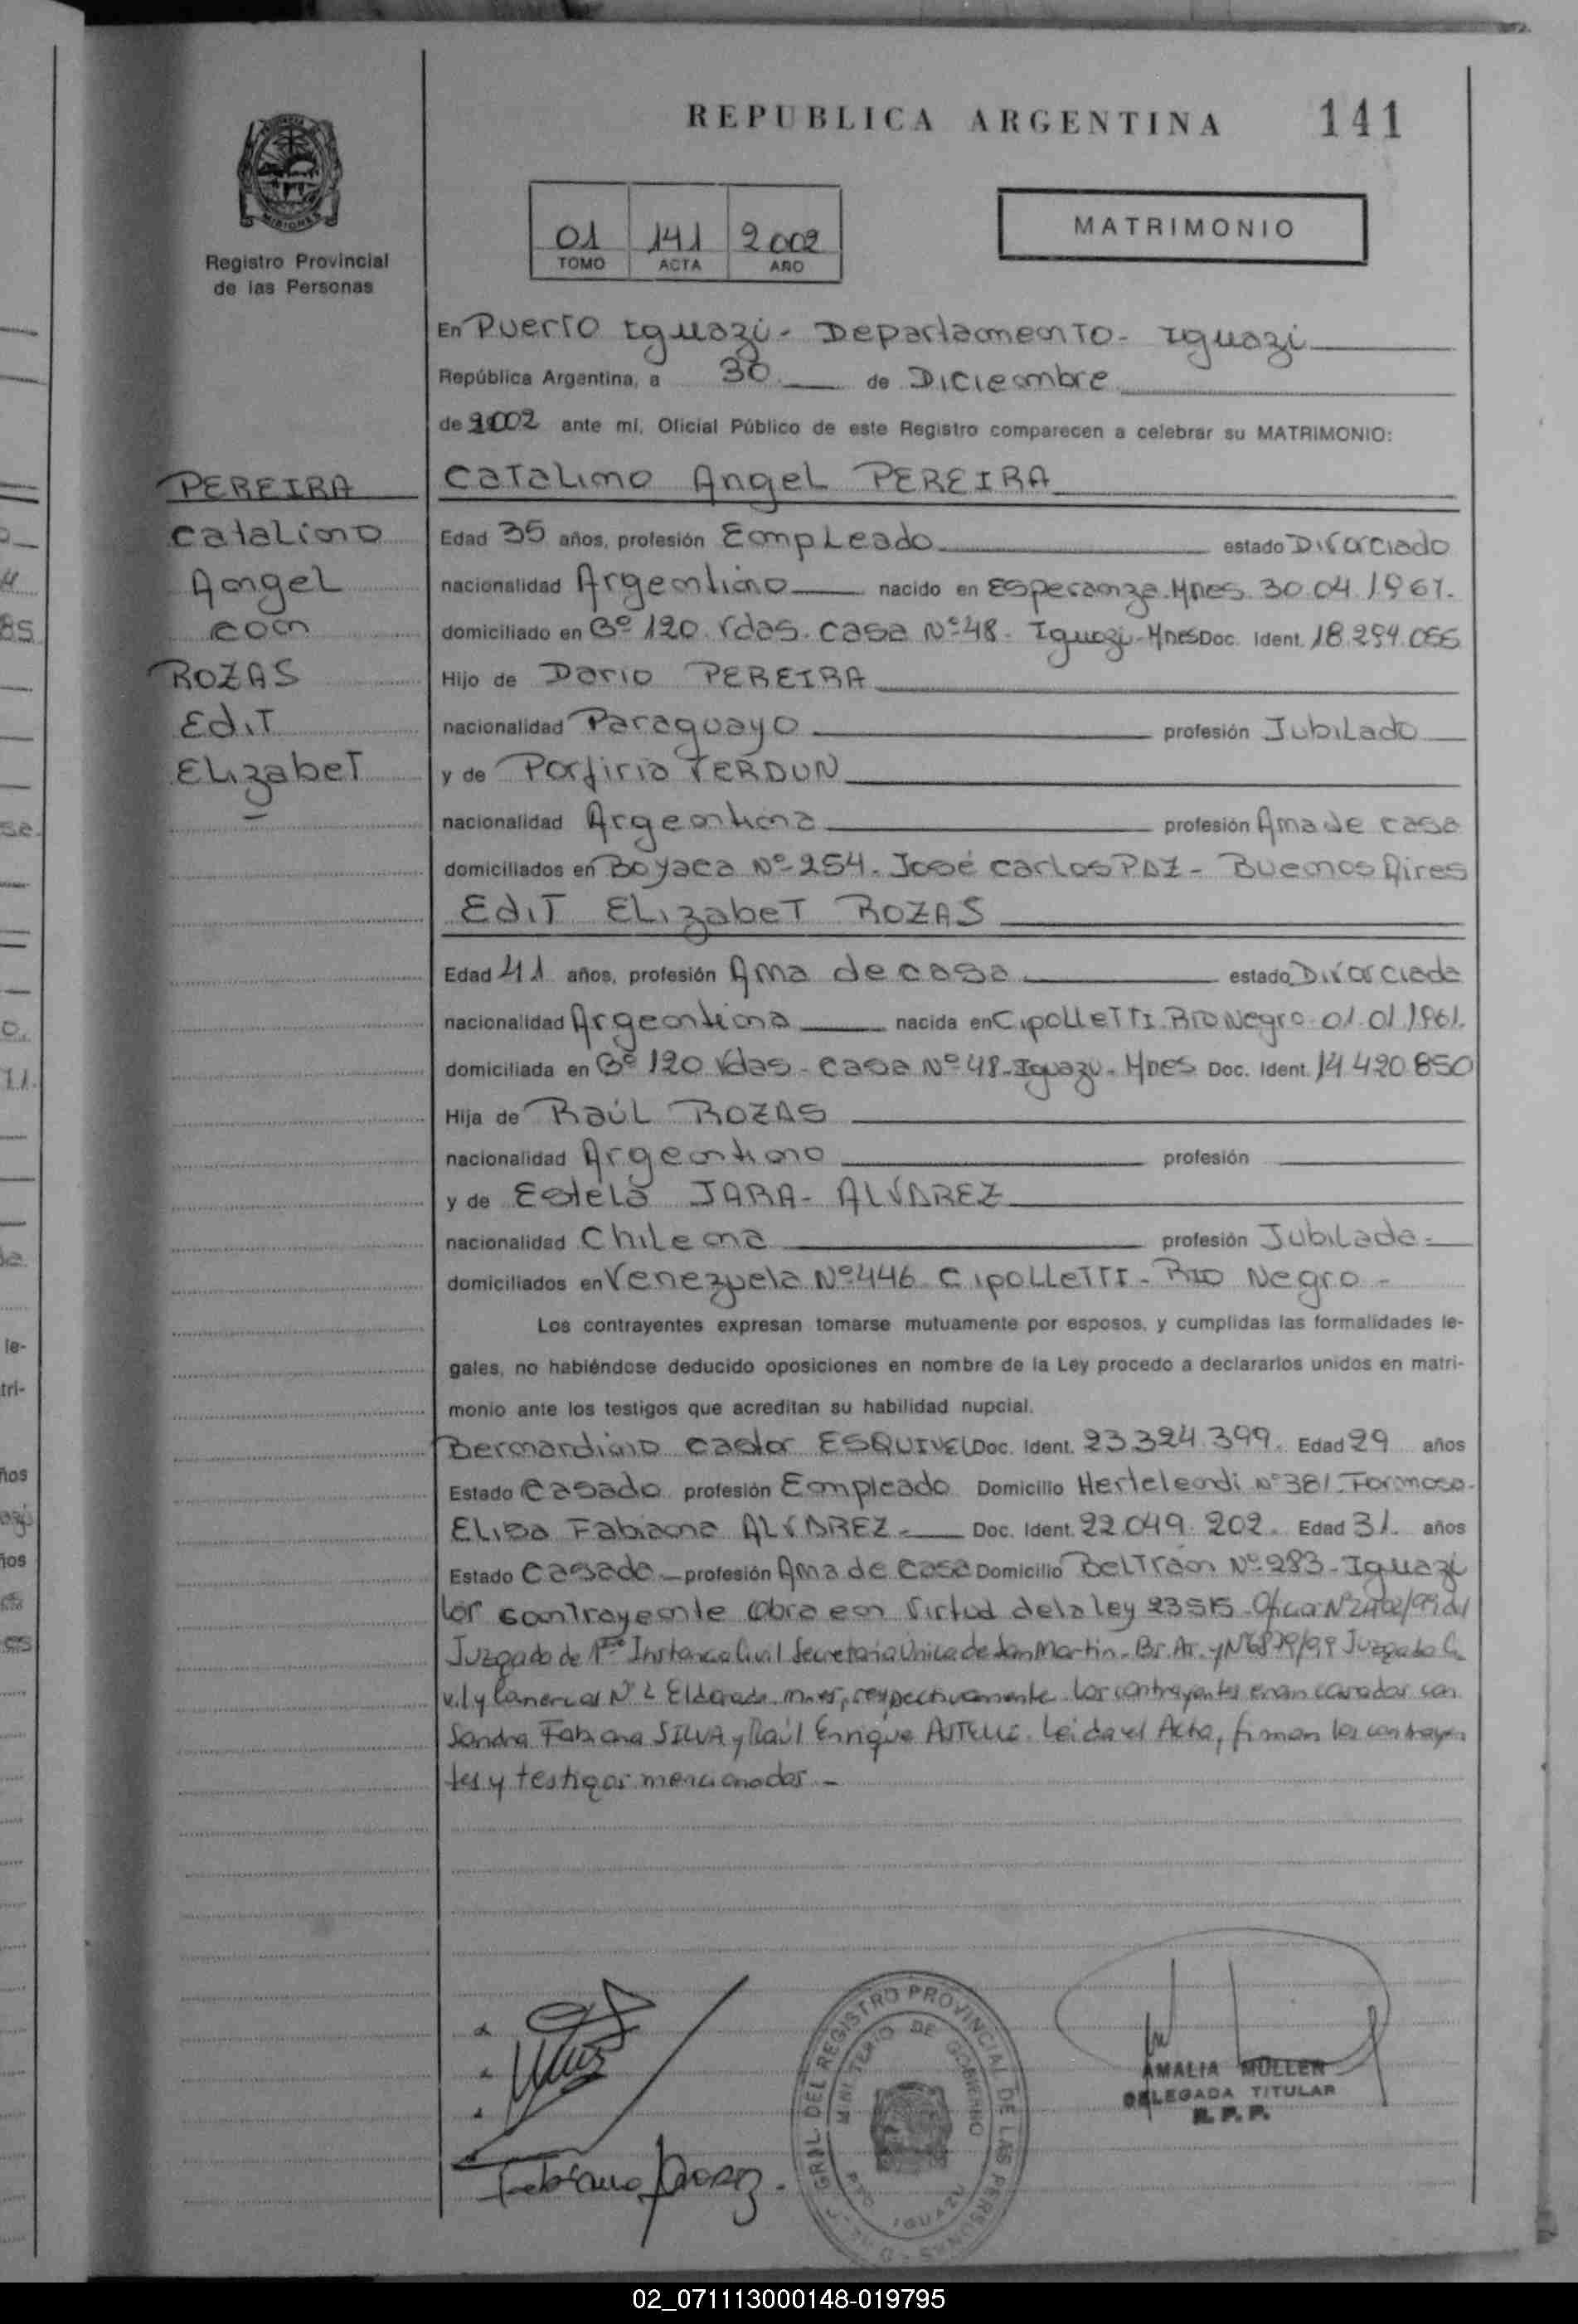 REPUBLICA ARGENTINA 141
MISIONES
Registro Provincial
de las Personas
01 141 2002
TOMO ACTA AÑO
MATRIMONIO
En Puerto Iguazú - Departamento - Iguazú
República Argentina, a 30 de Diciembre
de 2002 ante mí, Oficial Público de este Registro comparecen a celebrar su MATRIMONIO:
PEREIRA
Catalino
Angel
con
ROZAS
Edit
Elizabet
Catalino Angel PEREIRA
Edad 35 años, profesión Empleado estado Divorciado
nacionalidad Argentino nacido en Esperanza. Mnes. 30.04.1967.
domiciliado en Bº 120 Vdas. Casa Nº 48 - Iguazú - Mnes Doc. Ident. 18.294.055
Hijo de Dario PEREIRA
nacionalidad Paraguayo profesión Jubilado
y de Porfiria VERDUN
nacionalidad Argentina profesión Ama de casa
domiciliados en Boyaca Nº 254. José Carlos PAZ - Buenos Aires
Edit Elizabet ROZAS
Edad 41 años, profesión Ama de casa estado Divorciada
nacionalidad Argentina nacida en Cipolletti. Rio Negro 01.01.1961.
domiciliada en Bº 120 Vdas - Casa Nº 48 - Iguazu - Mnes Doc. Ident. 14.420.850
Hija de Raúl ROZAS
nacionalidad Argentino profesión
y de Estela JARA - ALVAREZ
nacionalidad Chilena profesión Jubilada -
domiciliados en Venezuela Nº 446 Cipolletti - Rio Negro -
Los contrayentes expresan tomarse mutuamente por esposos, y cumplidas las formalidades le-
gales, no habiéndose deducido oposiciones en nombre de la Ley procedo a declararlos unidos en matri-
monio ante los testigos que acreditan su habilidad nupcial.
Bernardino Castor ESQUIVEL Doc. Ident. 23.324.399. Edad 29 años
Estado Casado profesión Empleado Domicilio Hertelendi Nº 381 - Formosa -
Elisa Fabiana ALVAREZ - Doc. Ident. 22.049.202. Edad 31. años
Estado Casada - profesión Ama de Casa Domicilio Beltrán Nº 283 - Iguazú
Los contrayente obra en virtud de la ley 23515 - Oficio Nº /99 del
Juzgado de 1ra Instancia Civil Secretaria Única de San Martin - Bs. As. y Nº 6879/99 Juzgado Ci
vil y Comercial Nº 2 Eldorado. Mnes, respectivamente. Los contrayentes eran casados con
Sandra Fabiana SILVA y Raúl Enrique Leida el Acta, firman los contrayen
tes y testigos mencionados -
Fabiana
GRAL DEL REGISTRO PROVINCIAL DE LAS PERSONAS
MINISTERIO DE GOBIERNO
IGUAZU
AMALIA MÜLLER
DELEGADA TITULAR
R. P. P.
02_071113000148-019795